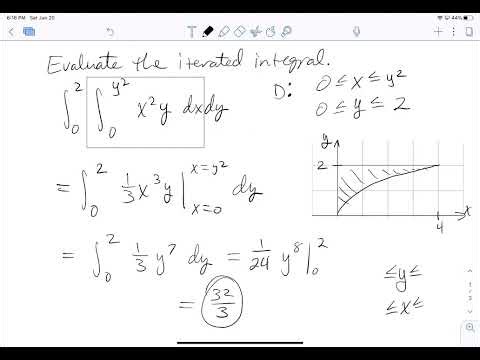 6:16 PM Sat Jun 20
44%
Evaluate the iterated integral.
∫₀² ∫₀^{y²} x²y dxdy
D: 0 ≤ x ≤ y²
0 ≤ y ≤ 2
= ∫₀² 1/3 x³y |_{x=0}^{x=y²} dy
y
2
4
x
= ∫₀² 1/3 y⁷ dy = 1/24 y⁸ |₀²
= 32/3
≤y≤
≤x≤